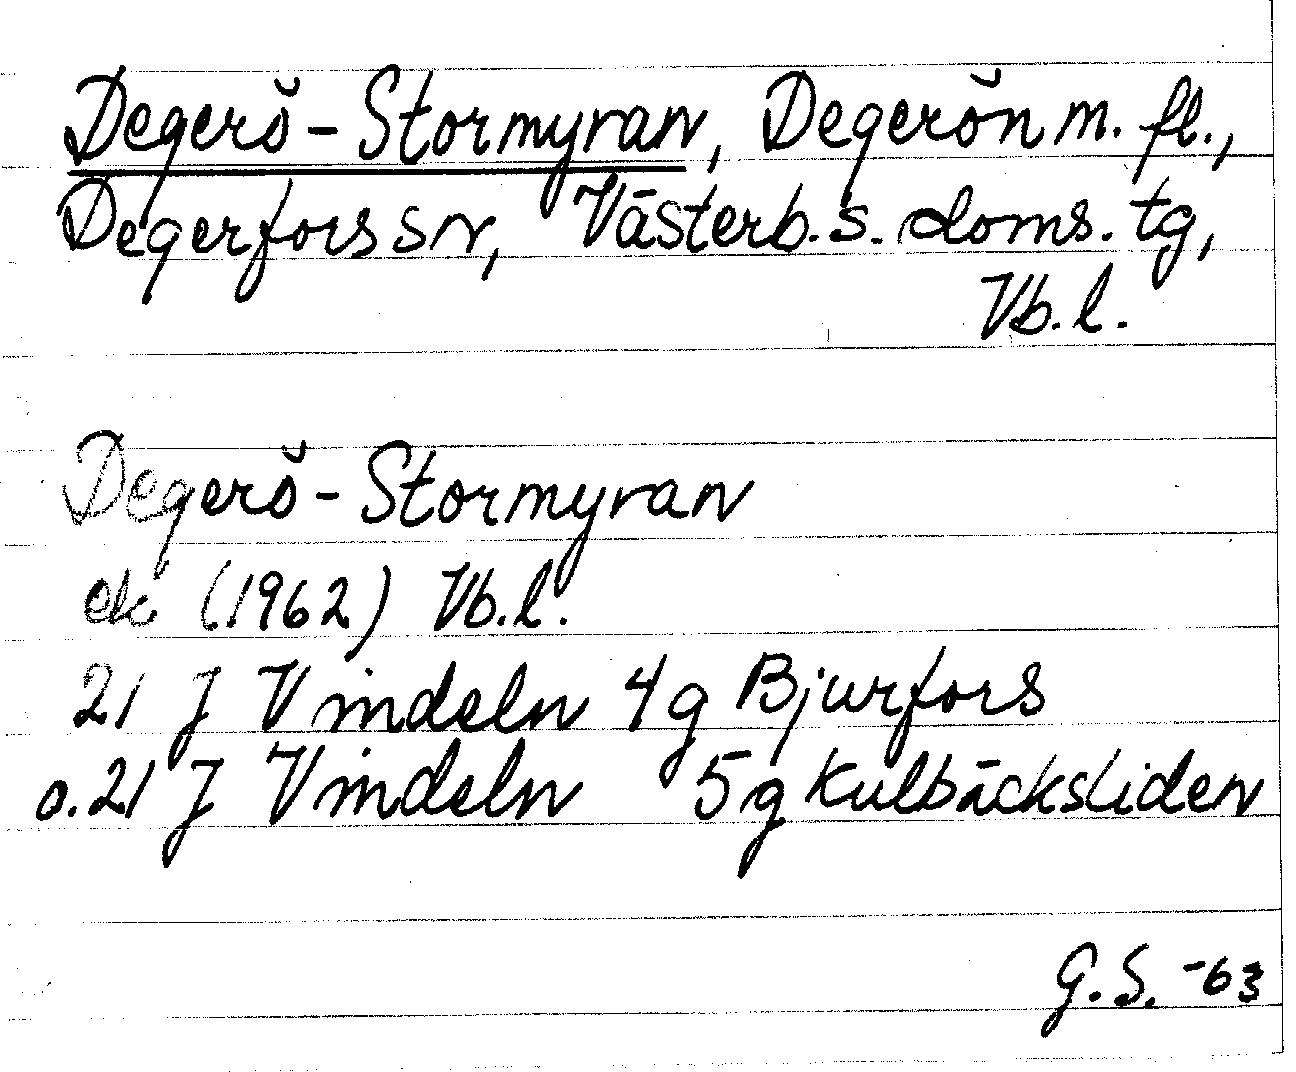 Degerö-Stormyran, Degerön m. fl.,
Degerfors sn, Västerb. s. doms. tg,
Vb. l.
Degerö-Stormyran
ek (1962) Vb. l.
21 J Vindeln 4g Bjurfors
o. 21 J Vindeln 5g Kulbäcksliden
G. S. -63